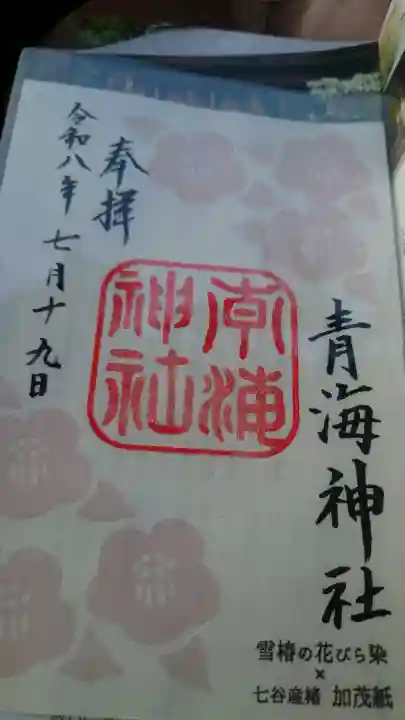 青海神社
奉拝
令和八年七月十九日
青海神社
雪椿の花びら染
×
七谷産楮 加茂紙